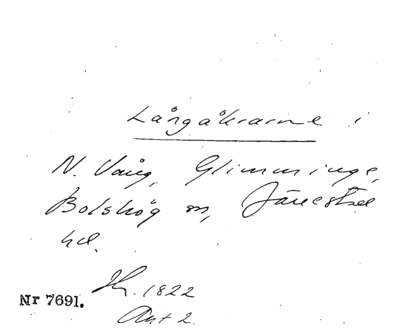 Långåkrarne i
N. Vång, Glimminge,
Bolshög sn, Järrestad
hd.
Sk. 1822
Nr 7691.
Akt 2.